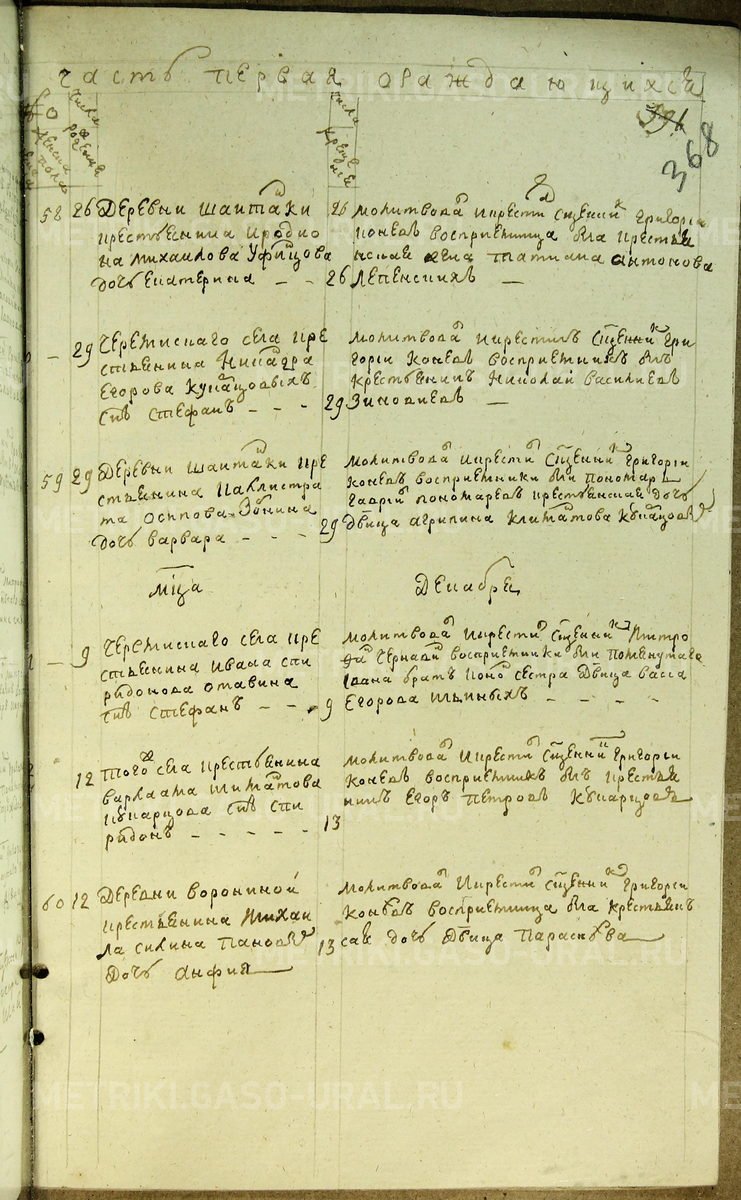 часть первая ораждающихся
числа рожденія
числа крещенія
396
368
58 26 Деревни Шаитаки
крестьянина Иродио
на Михаилова Уфимцова
дочь Екатерина
26 молитвовал и крестил священник Григорий
Конев восприемница была крестья
нская жена Татиана Антонова
26 Лепенских
29 Черемискаго села кре
стьянина
Егорова Кукарцовых
сын Стефан
молитвовал и крестил священник Гри
горий Конев восприемник был
крестьянин Николай Василиев
29 Зиновиев
59 29 Деревни Шаитаки кре
стьянина Каллистра
та Осипова Зонина
дочь Варвара
молитвовал и крестил священник Григорий
Конев восприемники были пономарь
Гаврил Пономарев крестьянская дочь
29 двица Агрипина Кукарцова
мца Декабря
9 Черемискаго села кре
стьянина Ивана Спи
ридонова
сын Стефан
молитвовал и крестил священник Митро
фан Чернавин восприемники были помянутаго
Ивана брат сестра двица Васса
9 Егорова Ильиных
12 того села крестьянина
Варлаама
Кукарцова сын Спи
ридон
молитвовал и крестил священник Григорий
Конев восприемник был крестья
нин Егор Петров Кукарцов
13
60 12 Деревни Ворониной
крестьянина Михаи
ла Силина Панова
дочь Анфия
молитвовал и крестил священник Григорий
Конев восприемница была крестьян
13 ская дочь двица Параскева
METRIKI.GASO-URAL.RU